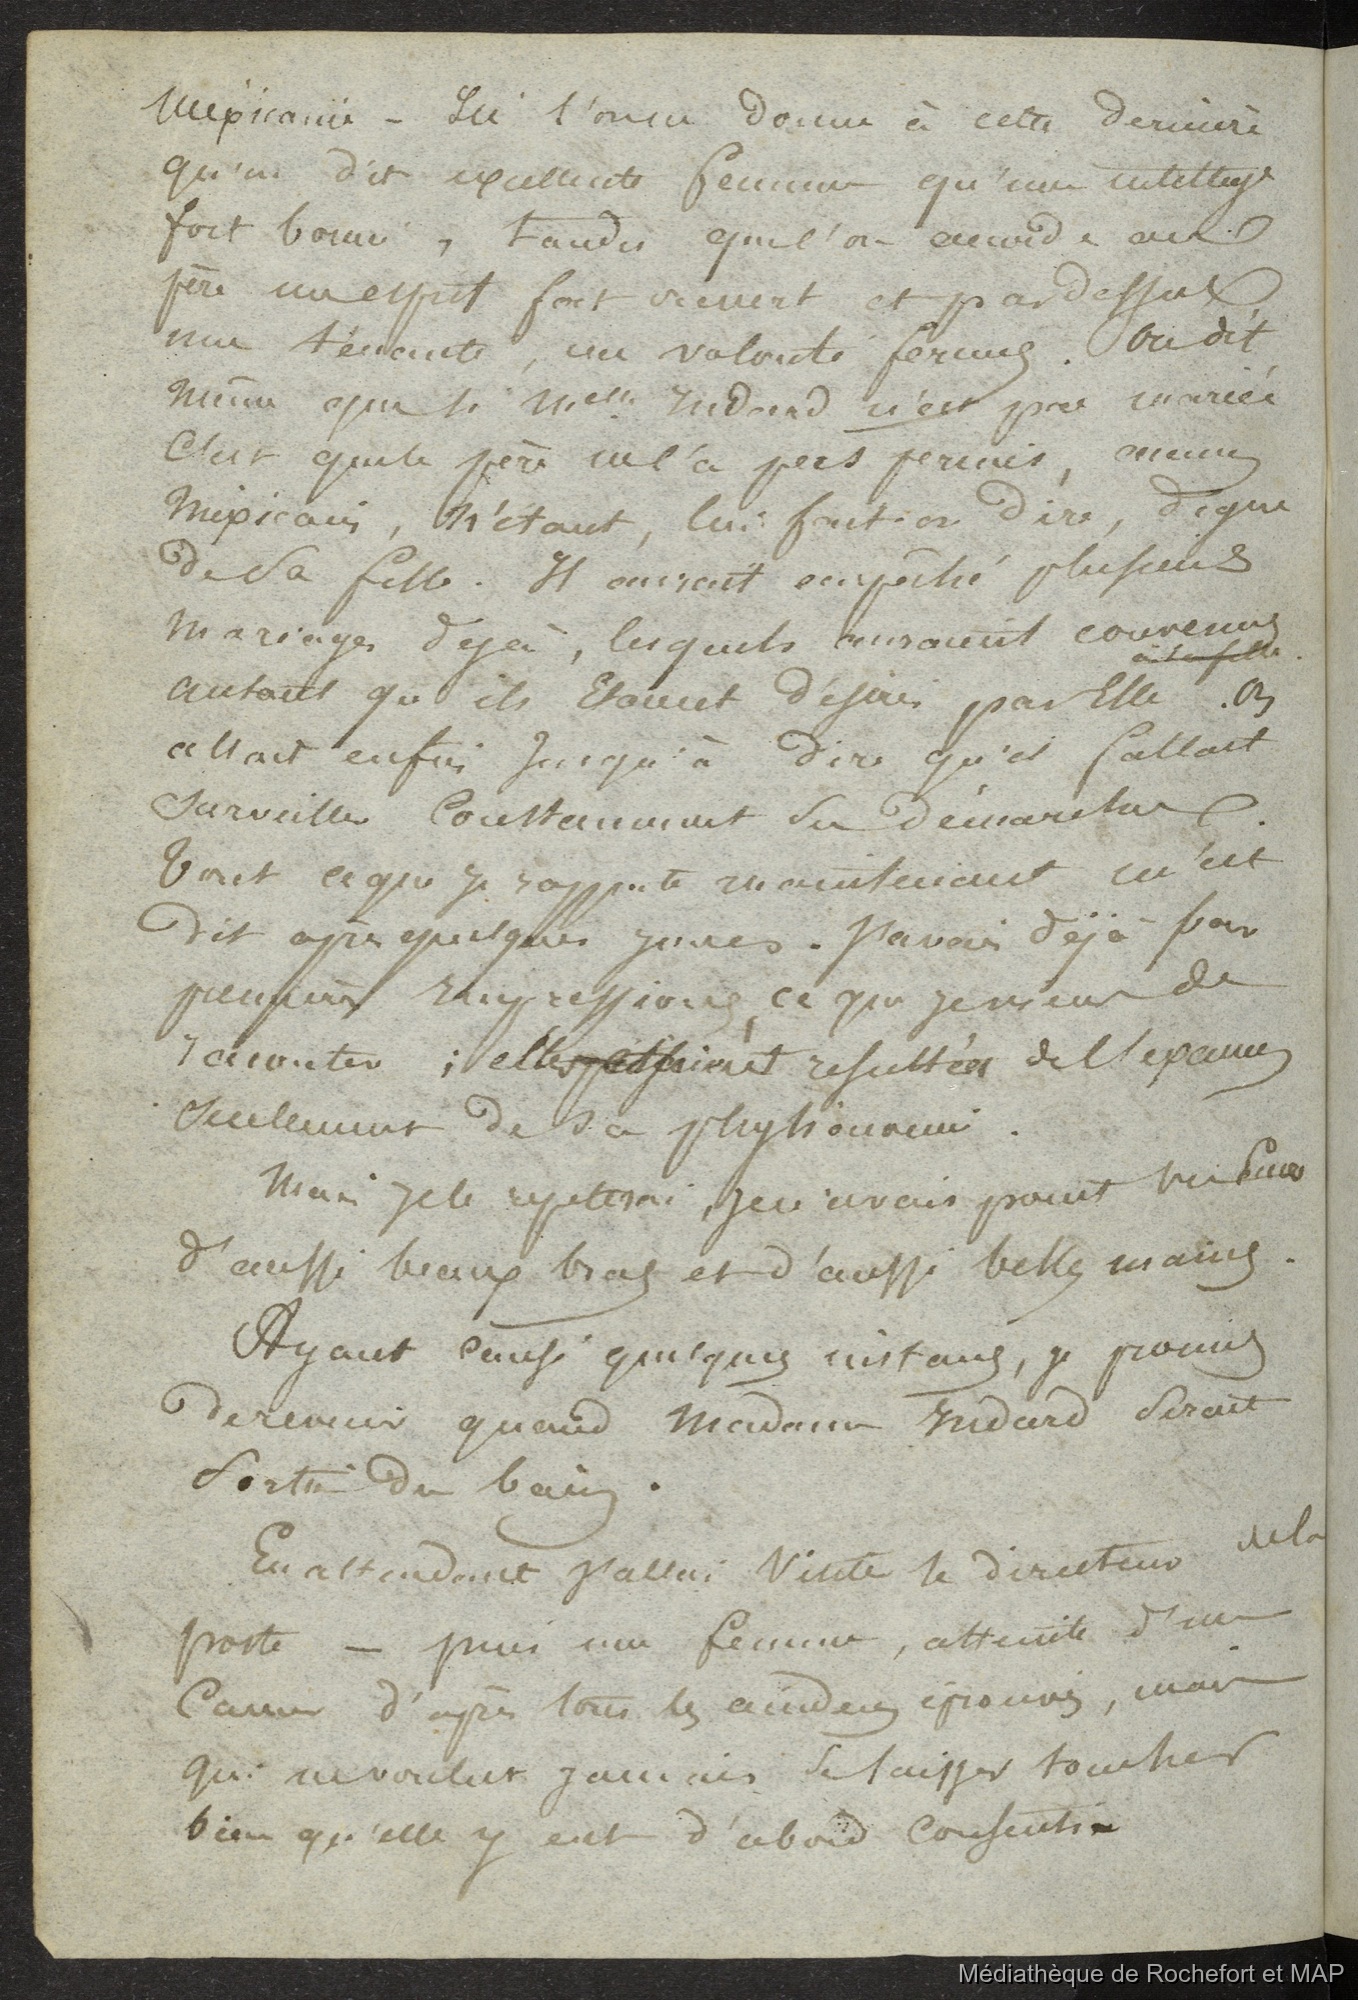 Mexicaine - Si l'on donne à cette dernière
qu'on dit excellente femme qu'une intellig
fort borné, tandis que l'on accorde au
père un esprit fort ouvert et pardessus
une tenante, une volonté ferme. On dit
même que si Melle Indard n'est pas mariée
c'est que le père ne l'a pas permis, aucun
Mexicain, n'étant, lui fait-on dire, digne
de sa fille. Il aurait empêché plusieurs
mariages déjà, lesquels auraient convenus
à la fille
autant qu'ils étaient désirés par Elle. On
allait enfin jusqu'à dire qu'il fallait
surveiller constamment ses démarches.
Tout ce que je rapporte maintenant m'est
dit après quelques jours. J'avais déjà par
premières impressions, ce que je viens de
raconter ; elles résultées de l'examen
seulement de sa physionomie.
Mais je le repeterai, je n'avais point vu
d'aussi beaux bras et d'aussi belles mains.
Ayant causé quelques instans, je promis
de revenir quand Madame Indard serait
sortie du bain.
En attendant j'allai visiter le directeur de la
poste - puis une femme, atteinte d'un
Cancer d'après tous les accidens éprouvés, mais
qui ne voulut jamais se laisser toucher
bien qu'elle y eut d'abord consenti
Médiathèque de Rochefort et MAP